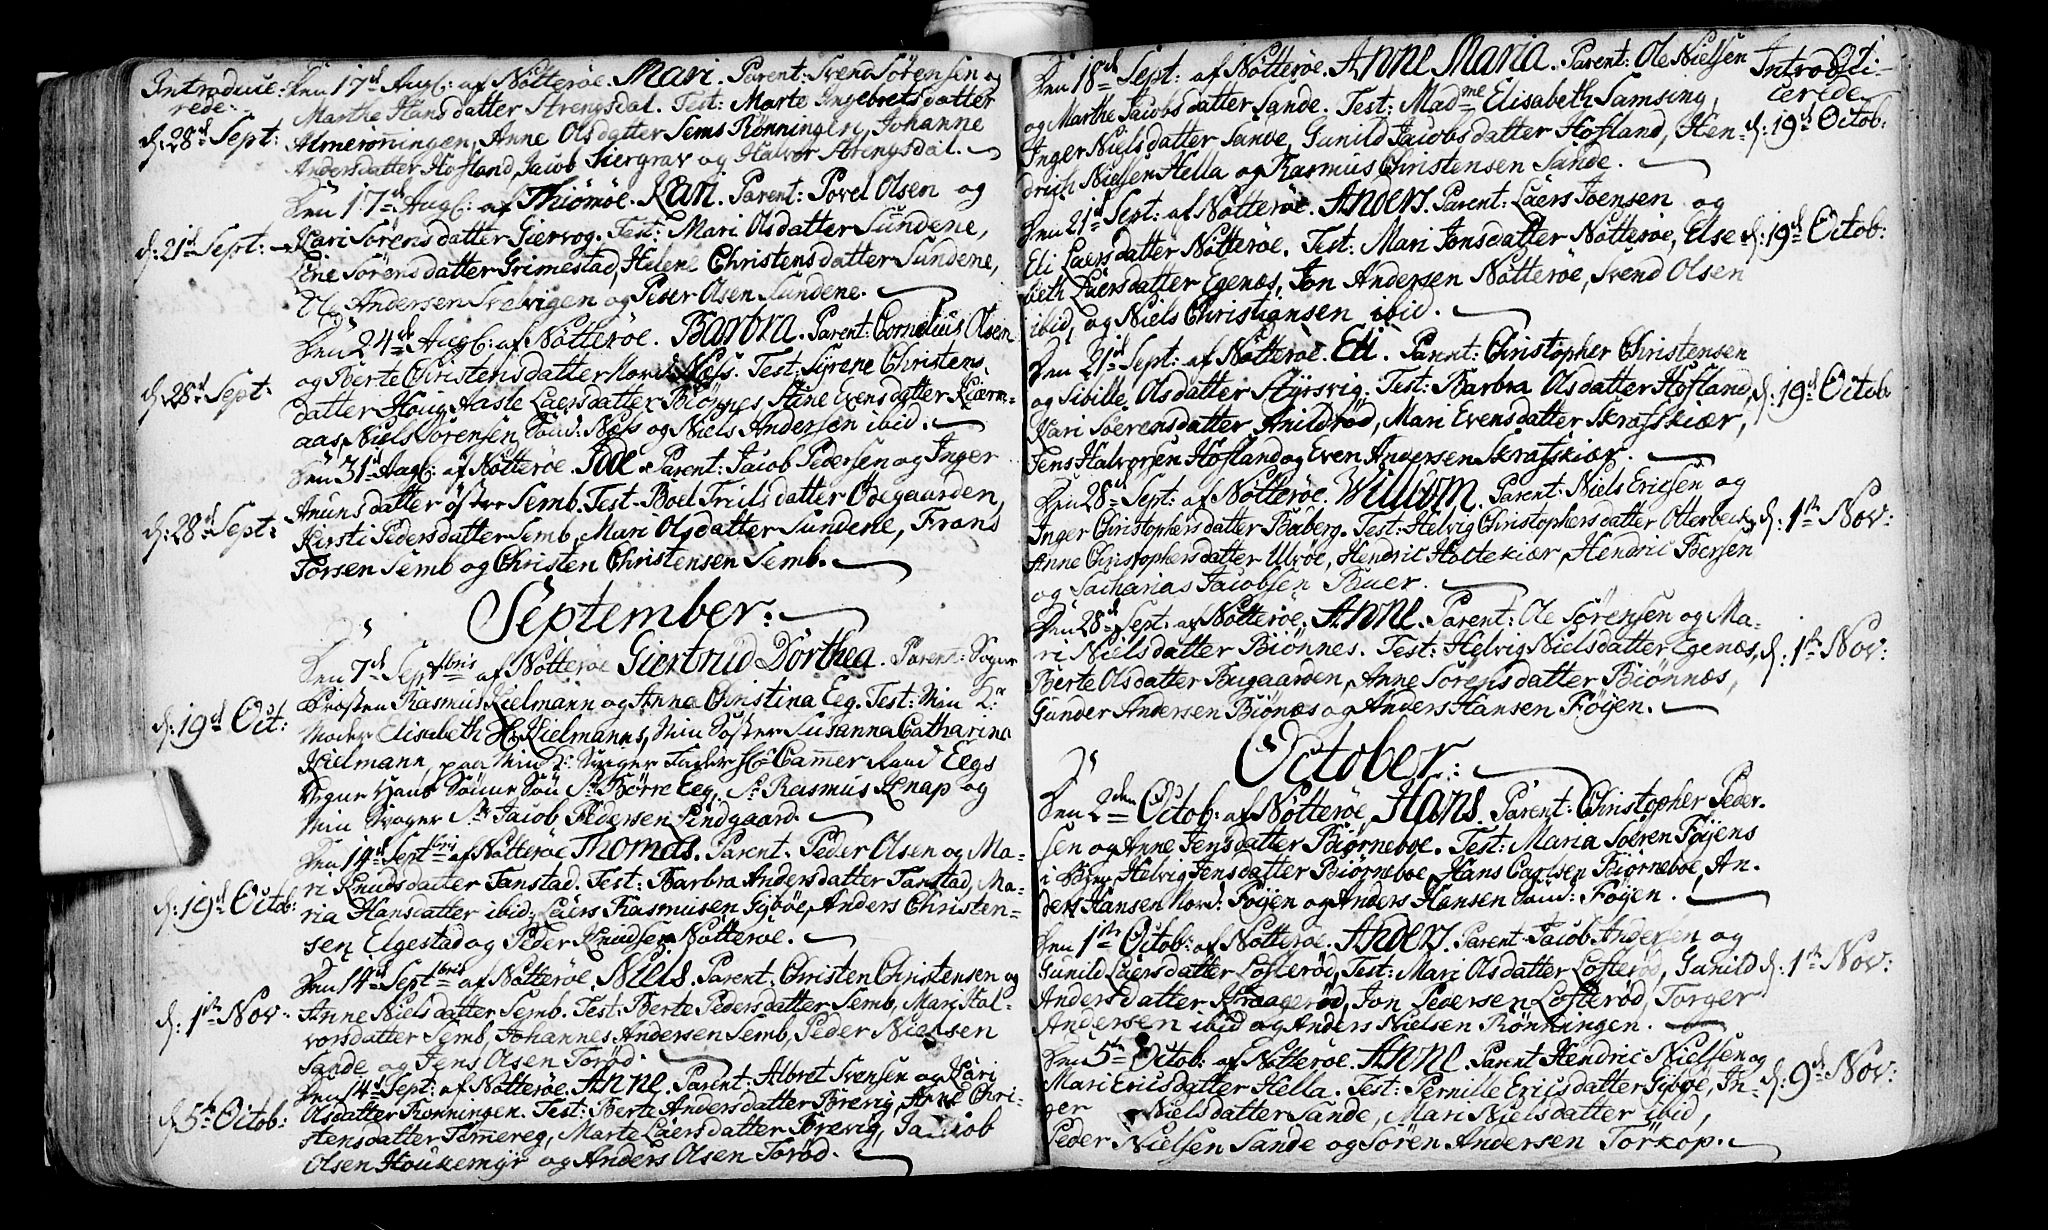 Introduce-
rede:
Den 17d Augb: af Nötteröe. Mari. Parent: Svend Sörensen og
Marthe Hansdatter Strengsdal. Test: Marte Ingebretsdatter
d: 28d Sept: Almeröningen, Anne Olsdatter Sems Rönningen, Johanne
Andersdatter Hofland, Jacob Kiergrav og Halvor Strengsdal.
Den 17d Augb: af Thiömöe. Kari. Parent: Povel Olsen og
d: 21d Sept: Kari Sörensdatter Giervog. Test: Mari Olsdatter Sundene,
Line Sörensdatter Grimestad, Helene Christensdatter Sundene,
Ole Andersen Svelvigen og Peter Olsen Sundene.
Den 24d Augb: af Nötteröe. Barbra. Parent: Cornelius Olsen
og Berte Christensdatter Nord: Næss. Test: Syrene Christens-
d: 28d Sept: datter Houg, Aasle Laersdatter Biönnes, Stine Evensdatter Kierm-
aas, Niels Sörensen Sönd: Næss og Niels Andersen ibid.
Den 31d Augb: af Nötteröe. Idde. Parent: Jacob Pedersen og Inger
Amunsdatter öster Semb. Test: Boel Trulsdatter Ödegaarden,
d: 28d Sept: Kirsti Pedersdatter Semb, Mari Olsdatter Sundene, Frans
Torsen Semb og Christen Christensen Semb.
September:
Den 7d Septbris af Nötteröe Giertrud Dorthea. Parent: Sogne
Prosten Rasmus Kielmann og Anna Christina Eeg. Test: Min K:
d: 19d Oct: Moder Elisabeth Kielmanns, Min Söster Susanna Catharina
Kielmann, paa Min K: Sviger Fader Hr Camer Raad Eegs
Vegne Hans Sönne Sön Sr Börre Eeg, Sr Rasmus Knap og
Min Svoger Sr Jacob Pedersen Lindgaard.
Den 14d Septbris af Nötteröe Thomas. Parent: Peder Olsen og Ma-
ri Knudsdatter Tanstad. Test: Barbra Andersdatter Tanstad, Ma-
d: 19d Octob: ria Hansdatter ibid: Laers Rasmusen Gipöe, Anders Christen-
sen Elgestad og Peder Knudsen Nötteröe.
Den 14d Septbris af Nötteröe. Niels. Parent: Christen Christensen og
d: 1ste Nov: Anne Nielsdatter Semb. Test: Berte Pedersdatter Semb, Mari Hal-
vorsdatter Semb, Johannes Andersen Semb, Peder Nielsen
Sande og Jens Olsen Toröd.
Den 14d Sept: af Nötteröe. Anne. Parent: Albret Svensen og Kari
d: 5te Octob: Olsdatter Rönningen. Test: Berte Andersdatter Brevig, Anne Chri-
stensdatter Temereg, Marte Laersdatter Brevig, Jacob
Olsen Houkemyr og Anders Olsen Toröd.
91.
Introdu-
cerede
Den 18d Sept: af Nötteröe. Anne Maria. Parent: Ole Nielsen
og Marthe Jacobsdatter Sande. Test: Madme Elisabeth Samsing,
Inger Nielsdatter Sande, Gunild Jacobsdatter Hofland, Hen- d: 19d Octob:
drich Nielsen Hella og Rasmus Christensen Sande.
Den 21d Sept: af Nötteröe. Anders. Parent: Laers Joensen og
Eli Laersdatter Nötteröe. Test: Mari Jonsdatter Nötteröe, Else- d: 19d Octob:
beth Laersdatter Egenæs, Jon Andersen Nötteröe, Svend Olsen
ibid, og Niels Christiansen ibid.
Den 21d Sept: af Nötteröe. Eli. Parent: Christopher Christensen
og Sibille Olsdatter Hyrsvig. Test: Barbra Olsdatter Hofland, d: 19d Octob:
Kari Soerensdatter Anildröd, Mari Evensdatter Skrafskiær,
Jens Halvorsen Hofland og Even Andersen Skrafskiær.
Den 28d Sept: af Nötteröe. Willum. Parent: Niels Ericsen og
Inger Christophersdatter Buberg. Test: Helvig Christophersdatter Otterbeck, d: 1ste Nov:
Anne Christophersdatter Ulvöe, Hendric Holtekiær, Hendric Bersen
og Sacharias Jacobsen Buer.
Den 28d Sept: af Nötteröe. Anne. Parent: Ole Sörensen og Ma-
ri Nielsdatter Biönnes. Test: Helvig Nielsdatter Egenæs, d: 1ste Nov:
Berte Olsdatter Bugaarden, Anne Sörensdatter Biönnæs,
Gunder Andersen Biönæs og Anders Hansen Föyen.
October:
Den 2den Octob: af Nötteröe, Hans. Parent: Christopher Peder-
sen og Anne Jensdatter Biörneboe. Test: Maria Soeren Föyens
i Byen, Helvig Jensdatter Biörneboe, Hans Carlsen Biörneboe, An-
ders Hansen Nord: Föyen og Anders Hansen Sönd: Föyen.
Den 1ste Octob: af Nötteröe. Anders. Parent: Jacob Andersen og
Gunild Laersdatter Lofteröd, Test: Mari Olsdatter Lofteröd, Gunild d: 1ste Nov:
Andersdatter Kraageröd, Jon Pedersen Lofteröd, Torger
Andersen ibid og Anders Nielsen Rönningen.
Den 5te Octob: af Nötteröe. Anne. Parent Hendric Nielsen og
Mari Ericsdatter Hella. Test: Pernille Ericsdatter Gipöe, In- d: 9de Nov:
ger Nielsdatter Sande, Mari Nielsdatter ibid,
Peder Nielsen Sande og Sören Andersen Torkop.